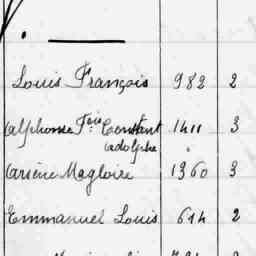 Louis François 982 2
Alphonse Fçois Constant 1411 3
Adolphe
Arsène Magloire 1360 3
Emmanuel Louis 614 2